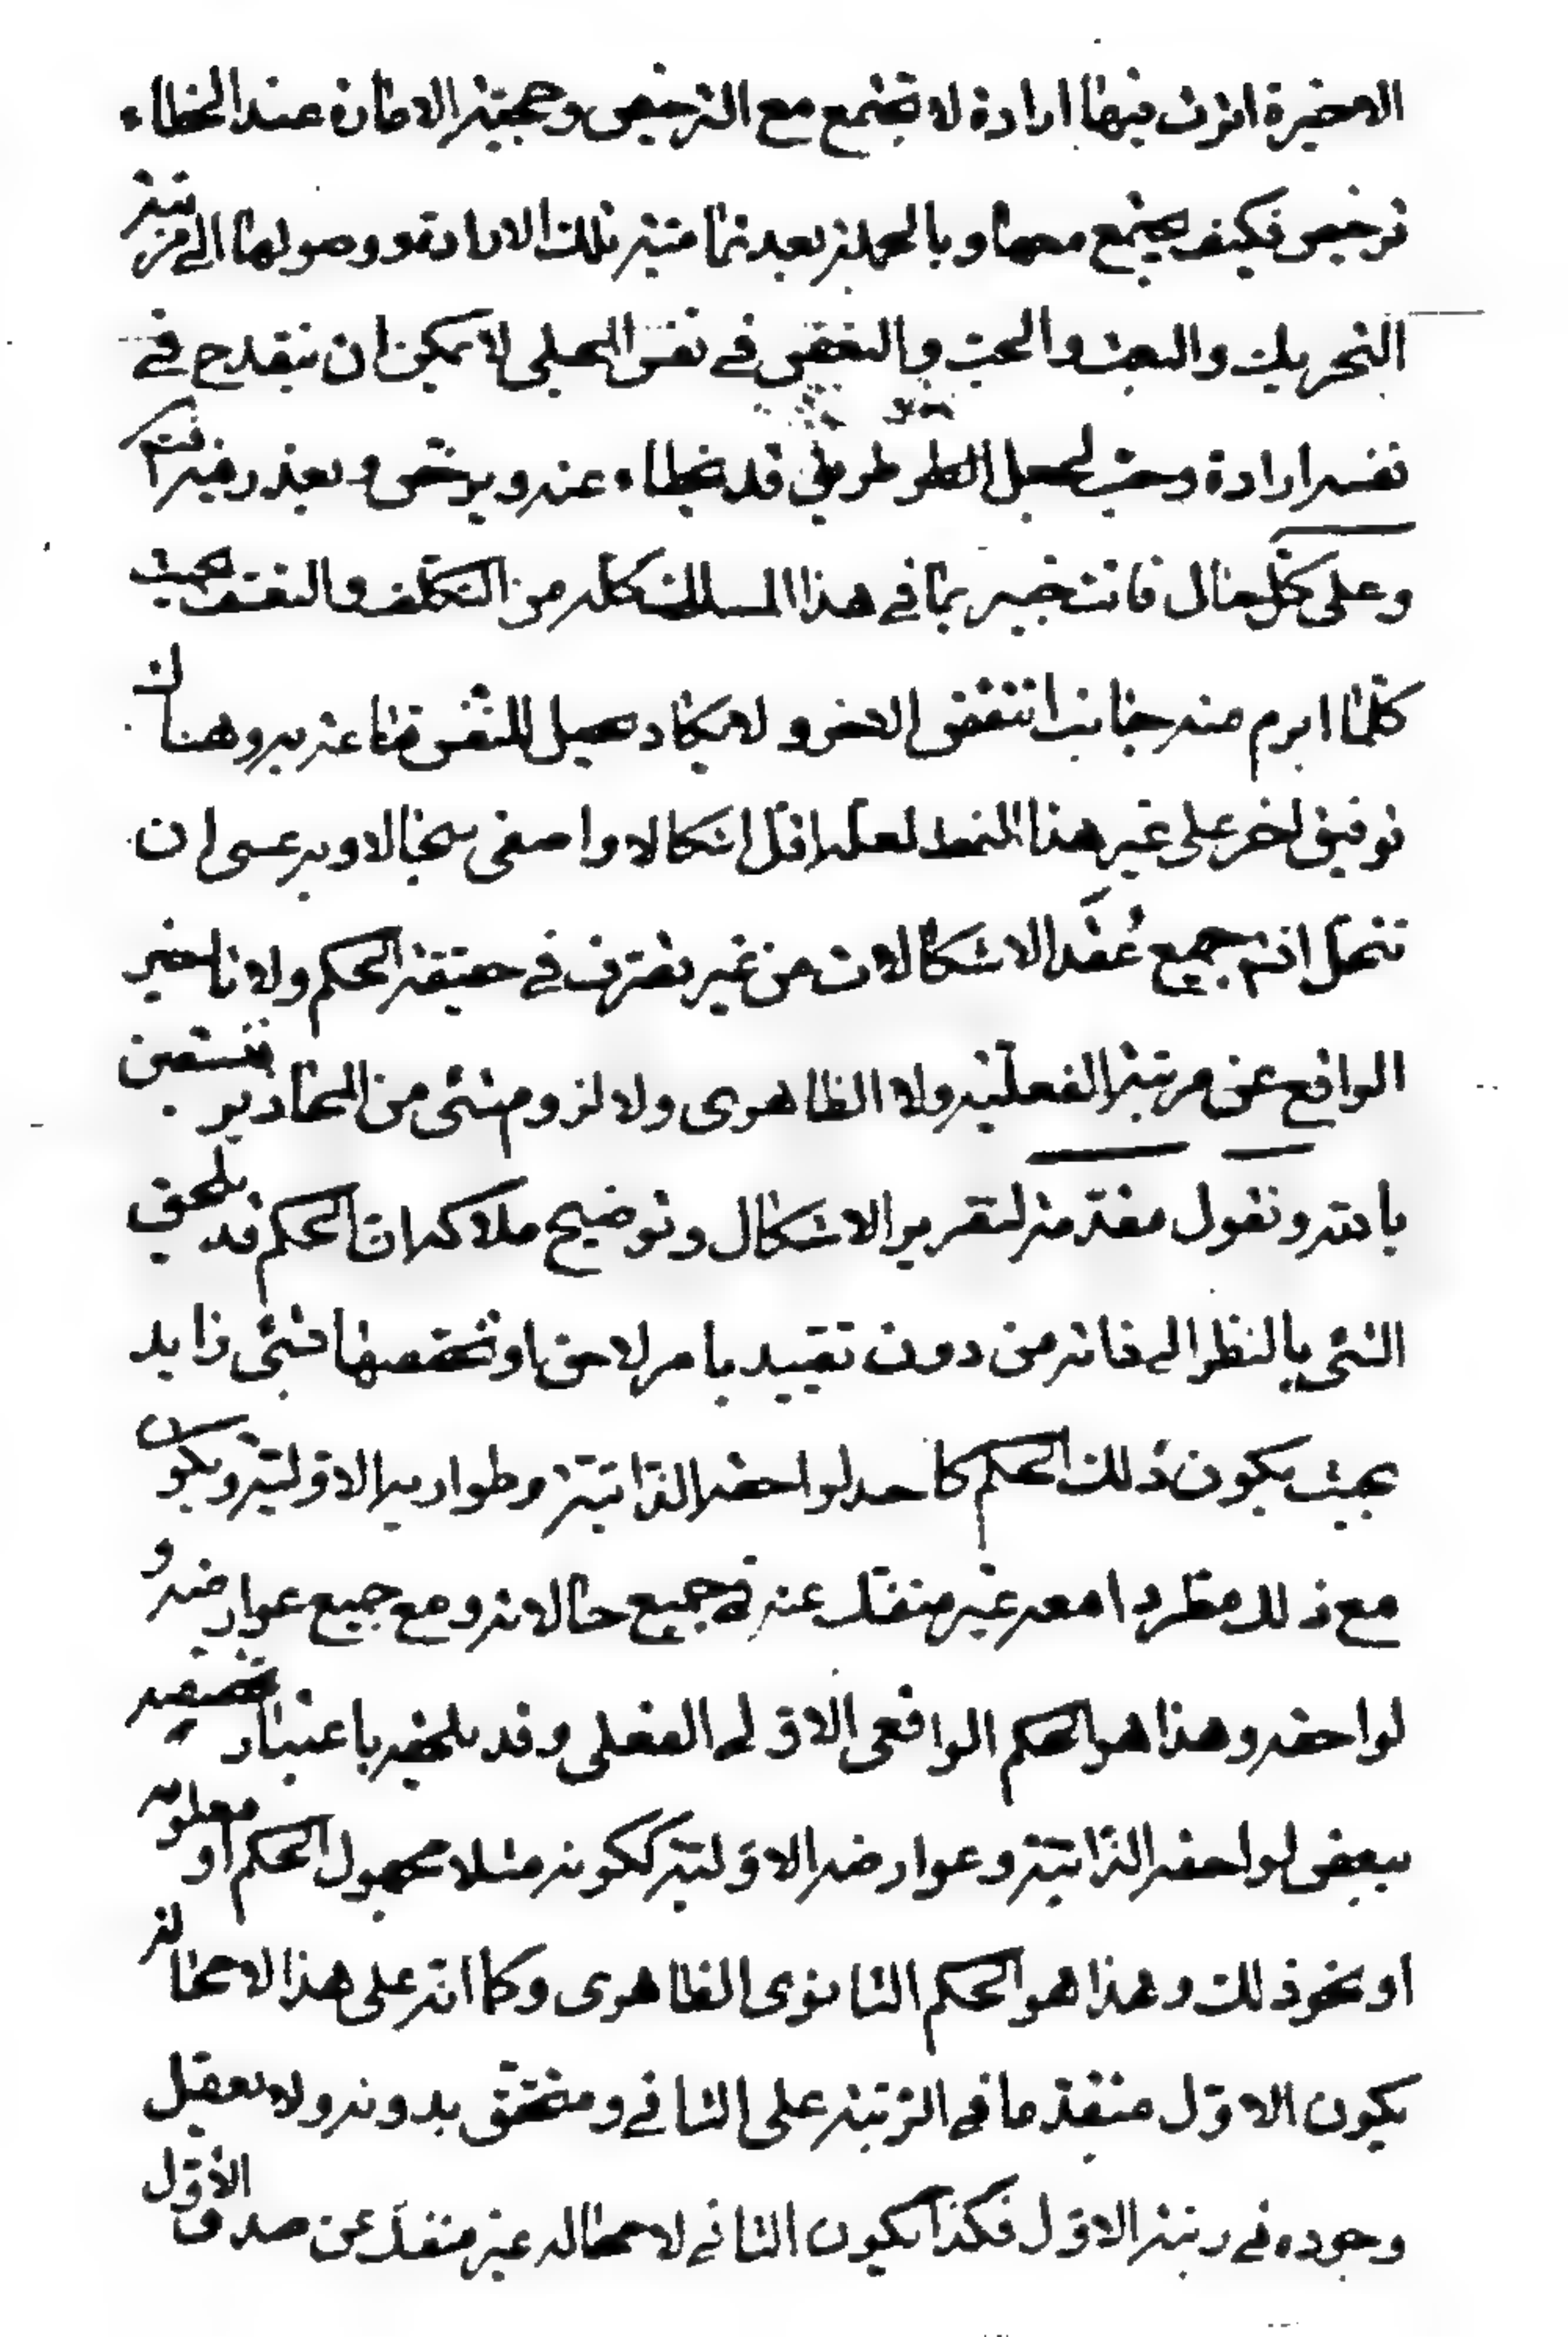 الاخيرة اثرت فيها ارادة لا تجتمع مع الترخيص وحجية الامارة عند الخطاء
ترخيص فكيف يجتمع معها وبالجملة بعد تمامية تلك الارادة ووصولها الى مرتبة
التحريك والبعث والحب والبغض في نفس المجلى لا يمكن ان ينقدح في
نفسه ارادة وحب لجعل طريق قد يخطاء عنه ويرخص ويعذر فيه
وعلى كل حال فانت خبير بما في هذا المسلك كله من التكلف والتعسف بحيث
كلما ابرم منه جانب انتقض الاخر ولا يكاد يحصل للنفس قناعة به وهناك
توفيق اخر على غير هذا النمط لعله اقل اشكالا واصفى مجالا وبه عسى ان
تنحل انشء جميع عُقَد الاشكالات من غير تصرف في حقيقة الحكم ولا تاخير
الواقع عن مرتبة الفعلية ولا الظاهرى ولا لزوم شئ من المحاذير فنستعين
بالله ونقول مقدمة لتقرير الاشكال وتوضيح ملاكه ان الحكم قد يلحق
الشئ بالنظر الى ذاته من دون تقييد بامر لاحق او تخصصها بشئ زايد
بحيث يكون ذلك الحكم كاحد لواحقه الذاتية وطواريه الاولية ويكون
مع ذلك مطردا معه غير منفك عنه في جميع حالاته ومع جميع عوارضه و
لواحقه وهذا هو الحكم الواقعى الاولى الفعلى وقد يلحقه باعتبار تخصيصه
ببعض لواحقه الذاتية وعوارضه الاولية ككونه مثلا مجهول الحكم او معلومه
او نحو ذلك وهذا هو الحكم الثانوى الظاهرى وكما انه على هذا لا محالة
يكون الاول متقدما في الرتبة على الثانى ومتحقق بدونه ولا يعقل
وجوده في رتبة الاول فكذا يكون الثانى لا محالة غير منفك عن صدق الأول